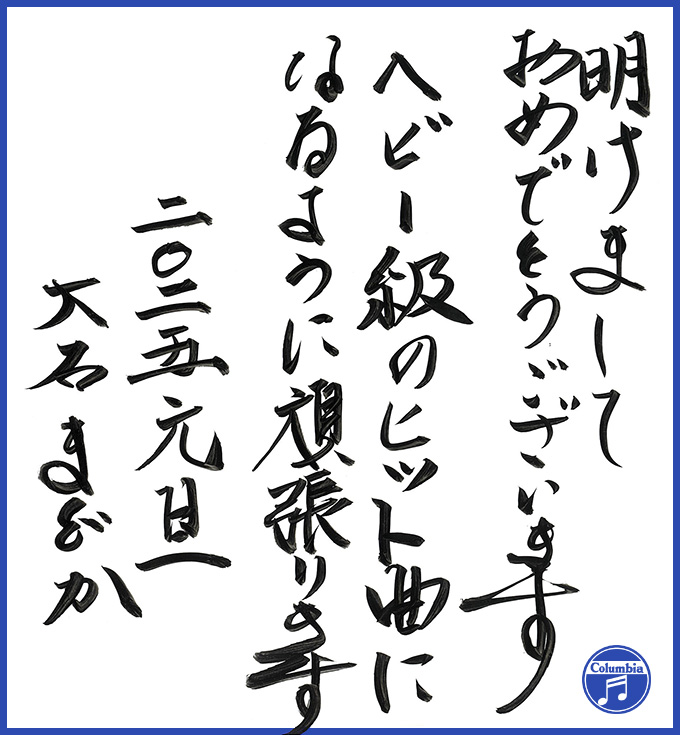 明けまして
おめでとうございます
ヘビー級のヒット曲に
なるように頑張ります
二〇二五元旦
大石まどか
Columbia